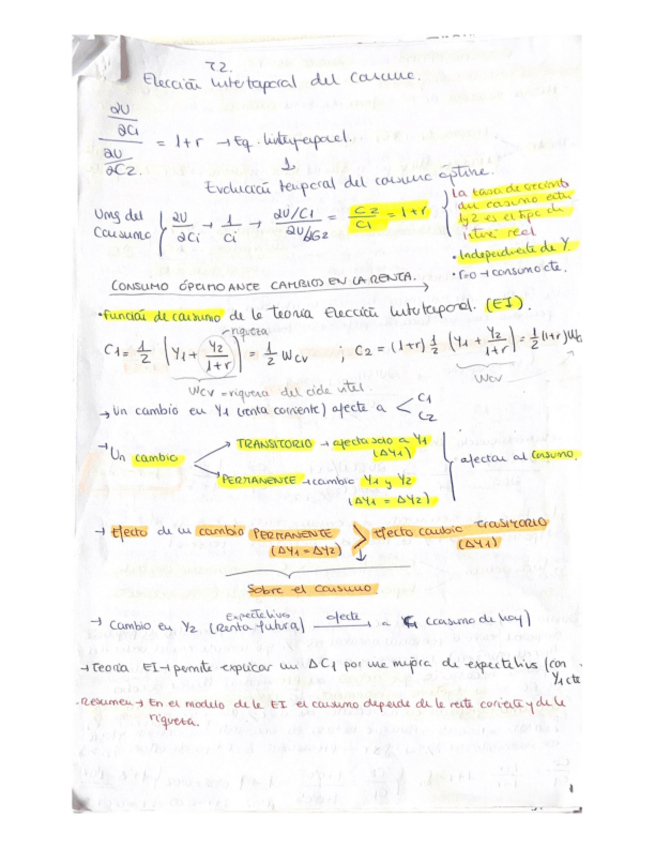 T.2.
Elección intertemporal del consumo.
∂U/∂C1 / ∂U/∂C2 = 1+r → Eq. intertemporal.
↓
Evolución temporal del consumo óptimo.
Umg del consumo { ∂U/∂Ci → 1/Ci → ∂U/C1 / ∂U/C2 = C2/C1 = 1+r
La tasa de crecimto
del consumo entre
1y2 es el tipo de
interés real
• Independiente de Y.
• r=0 → consumo cte.
CONSUMO ÓPTIMO ANTE CAMBIOS EN LA RENTA.
• función de consumo de la teoría Elección Intertemporal. (EI).
riqueza
C1 = 1/2 (Y1 + Y2/1+r) = 1/2 Wcv ; C2 = (1+r) 1/2 (Y1 + Y2/1+r) = 1/2 (1+r) Wcv
Wcv = riqueza del ciclo vital.
Wcv
→ Un cambio en Y1 (renta corriente) afecta a < C1 C2
→ Un cambio
→ TRANSITORIO → afecta solo a Y1
(ΔY1)
→ PERMANENTE → cambio Y1 y Y2
(ΔY1 = ΔY2)
afectan al consumo.
→ Efecto de un cambio PERMANENTE > Efecto cambio TRANSITORIO
(ΔY1 = ΔY2) (ΔY1)
Sobre el consumo.
Expectativa
→ Cambio en Y2 (Renta futura) afecta → a C1 (consumo de hoy)
→ Teoría EI → permite explicar un ΔC1 por una mejora de expectativas (con
Y1 cte
• Resumen → En el modelo de la EI el consumo depende de la renta corriente y de la
riqueza.
1